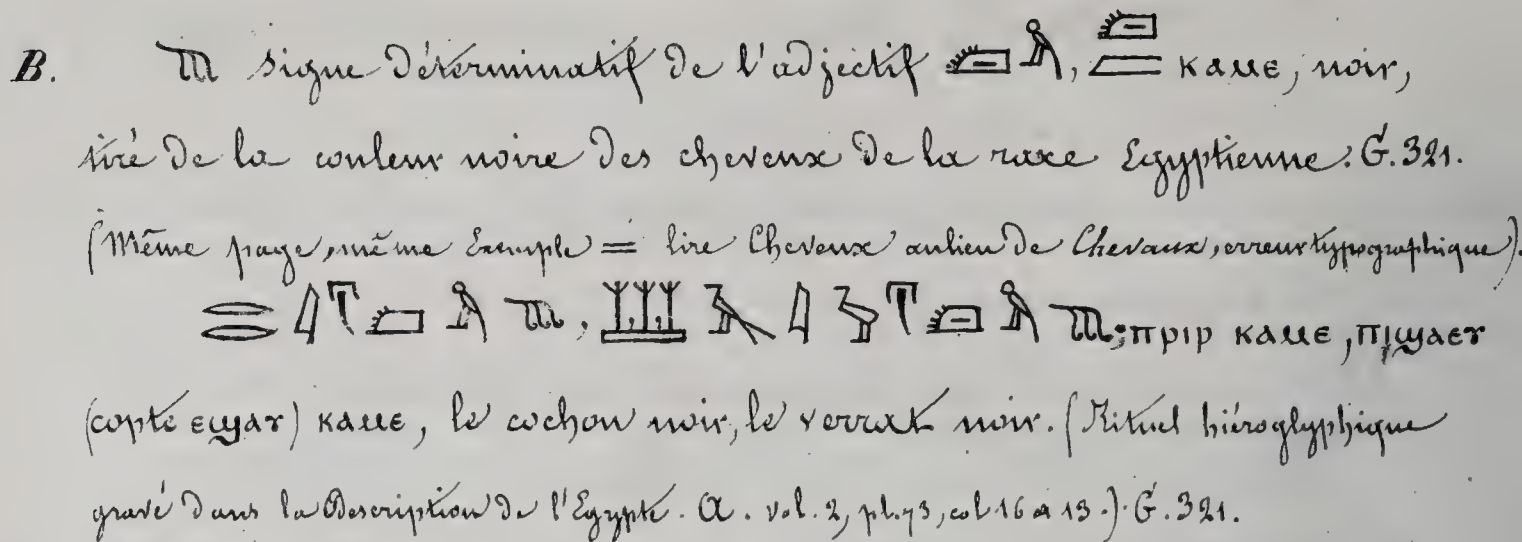 B. signe déterminatif de l'adjectif , ⲕⲁⲙⲉ, noir,
tiré de la couleur noire des cheveux de la race Egyptienne. G. 321.
(Même page, même Exemple = lire Cheveux aulieu de Chevaux, erreur typographique).
, ; ⲡⲣⲓⲣ ⲕⲁⲙⲉ, ⲡⲓϣⲁⲉⲩ
(copte ⲉϣⲁⲩ) ⲕⲁⲙⲉ, le cochon noir, le verrat noir. (Rituel hiéroglyphique
gravé dans la Description de l'Egypte. A. vol. 2, pl. 73, col 16 a 13.). G. 321.